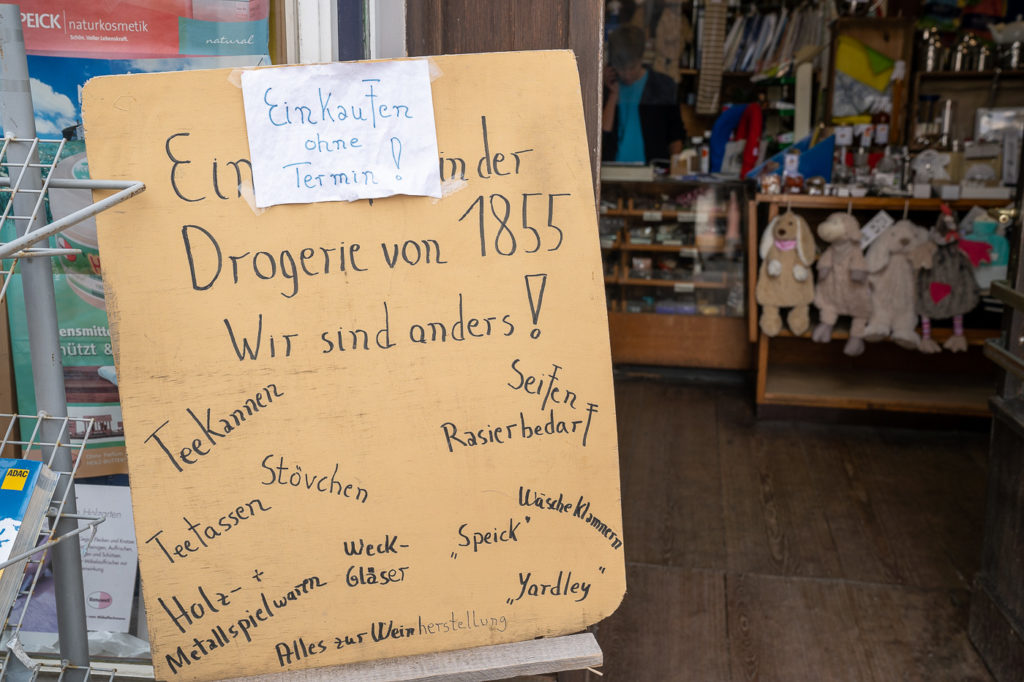 SPEICK naturkosmetik
Schön. Voller Lebenskraft.
natural
Einkaufen
ohne
Termin!
Ein in der
Drogerie von 1855
Wir sind anders!
Teekannen
Seifen
Rasierbedarf
Stövchen
Teetassen
Wäscheklammern
„Speick“
Weck-
Gläser
Holz- +
Metallspielwaren
„Yardley“
Alles zur Weinherstellung
ADAC